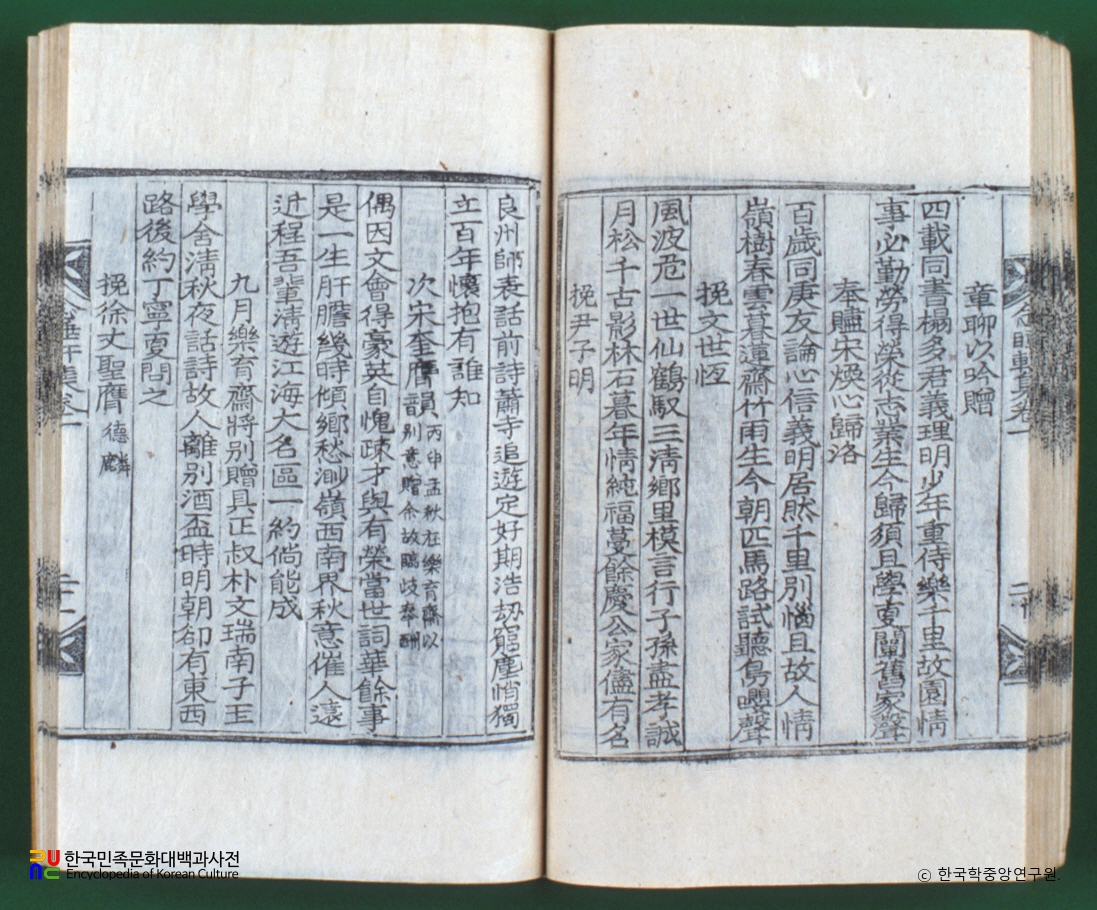 章聊以吟贈
四載同書榻多君義理明少年重侍樂千里故園情
事必勤勞得榮從志業生今歸須且學更闡舊家聲
奉贐宋煥心歸洛
百歲同庚友論心信義明居然千里別惱且故人情
嶺樹春雲暮蓮齋竹雨生今朝匹馬路試聽鳥嚶聲
挽文世恆
風波危一世仙鶴馭三淸鄕里模言行子孫盡孝誠
月松千古影林石暮年情純福蔓餘慶公家儘有名
挽尹子明
良州師表話前詩蕭寺追遊定好期浩劫軀塵悄獨
立百年懷抱有誰知
次宋奎膺韻 丙申孟秋在樂育齋以
別意贈余故臨歧奉酬
偶因文會得豪英自愧疎才與有榮當世詞華餘事
是一生肝膽幾時傾鄕愁渺嶺西南界秋意催人遠
近程吾輩淸遊江海大名區一約倘能成
九月樂育齋將別贈具正叔朴文瑞南子玉
學舍淸秋夜話詩故人離別酒盃時明朝却有東西
路後約丁寧更問之
挽徐丈聖膺 德麟
한국민족문화대백과사전
Encyclopedia of Korean Culture
ⓒ 한국학중앙연구원.